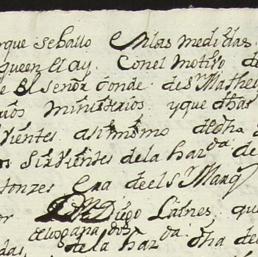 rque se hallo En las medidas
queen El ay. Con el motivo de
e El señor Conde de Sn Matheo
uos ministerios, y que dhas
Vientes asi mismo dedha
os sirVientes dela hazda de
tonzes Era de el Sr Marq
or Dn Diego Laines, que
dela hazda dha de